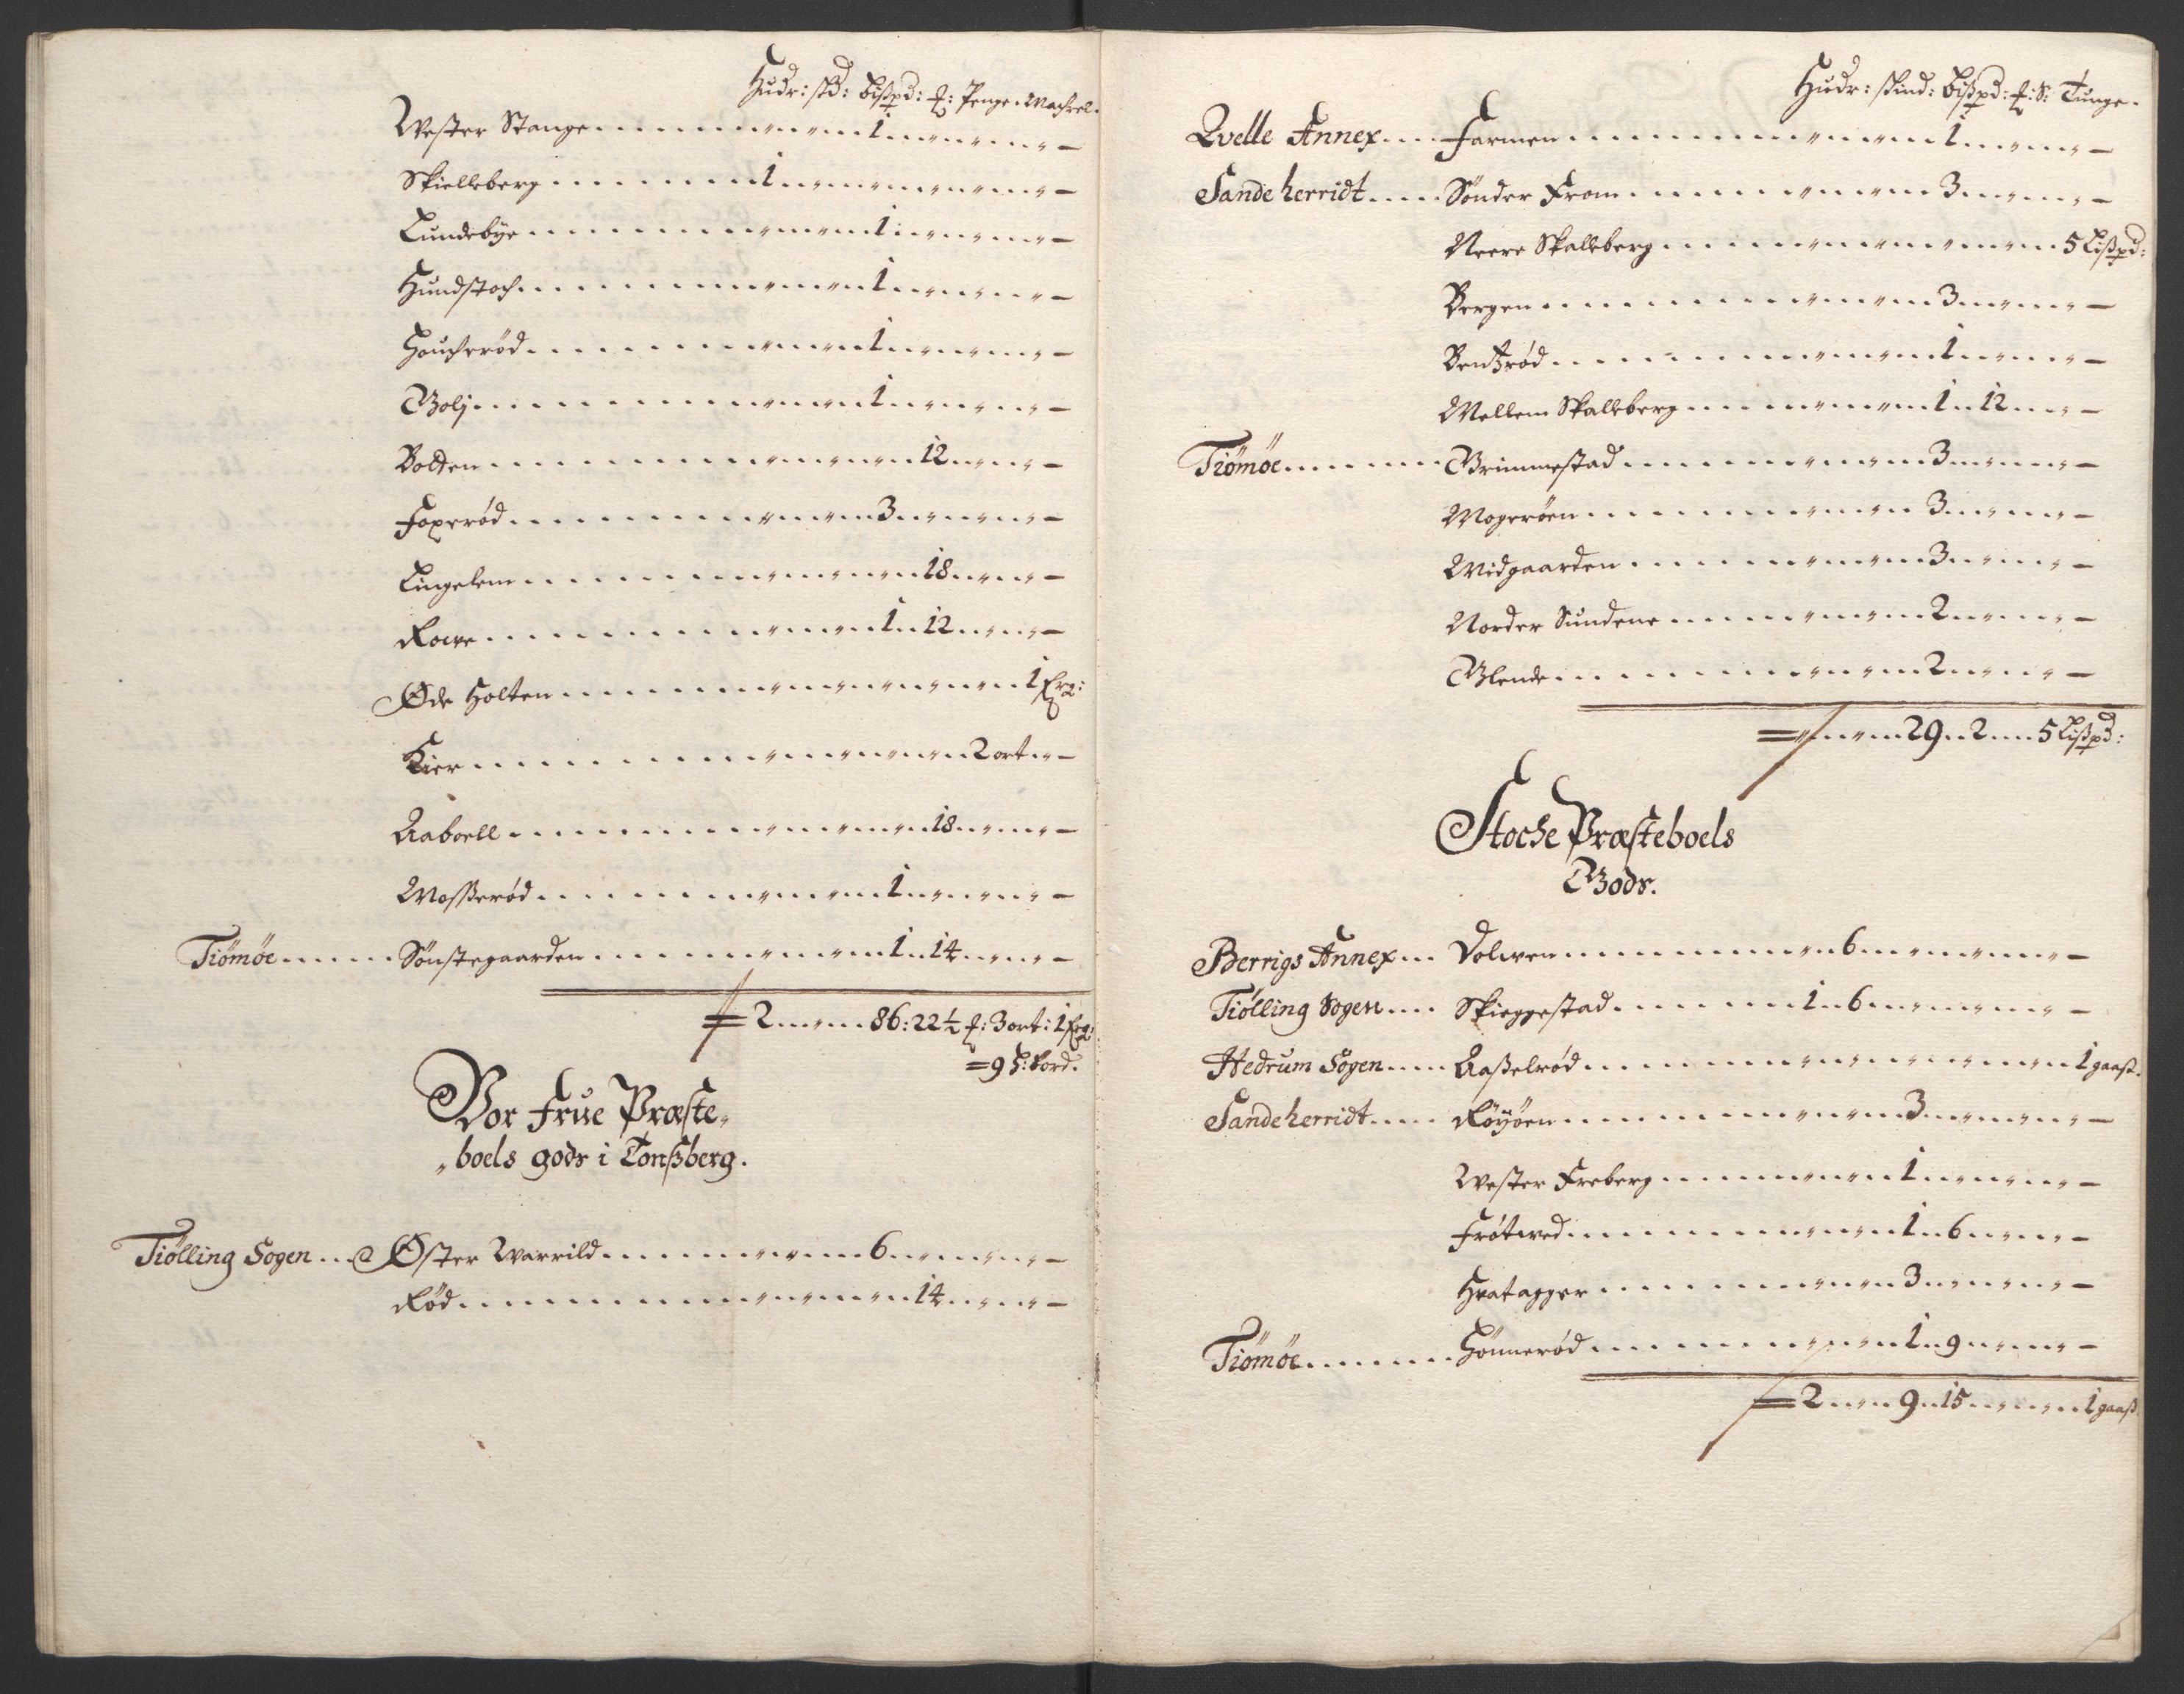 Hudr: skd: bißpd: f: Penge. Machrel.
Wester Stange 1 -
Skielleberg 1 -
Lundebye 1 -
Hundstoch 1 -
Houcherød 1 -
Golj 1 -
Bolten 12 -
Foxerød 3 -
Lingelem 18 -
Rowe 1 12 -
Øde Holten 1
Kier 2 ort -
Aaboell 18 -
Moßerød 1 -
Tiömöe Sönstegaarden 1 14 -
= 2 86: 22½ f: 3 ort: 1
= 9
Vor Frue Præste„
„boels gods i Tonßberg.
Tiölling Sogen Øster Warrild 6 -
Rød 14 -
Hudr: skind: bißpd: f: S: Tunge.
Qvelle Annex Farmen 1 -
Sandeherridt Sönder From 3 -
Neere Skalleberg 5 Lißpd:
Bergen 3 -
Bentzrød 1 -
Mellem Skalleberg 1 12 -
Tiömöe Grimmestad 3 -
Mogerøen 3 -
Midgaarden 3 -
Norder Sundene 2 -
Glende 2 -
= 29 2 5 Lißpd:
Stoche Præsteboels
Gods.
Berrigs Annex Dolwen 6 -
Tiölling Sogen Skieggestad 1 6 -
Hedrum Sogen Aaßelrød 1 gaaß.
Sandeherridt Röyöen 3 -
Wester Freberg 1 -
Frøtwed 1 6 -
Hvatagger 3 -
Tiömöe Hönnerød 1 9 -
= 2 9 15 1 gaaß